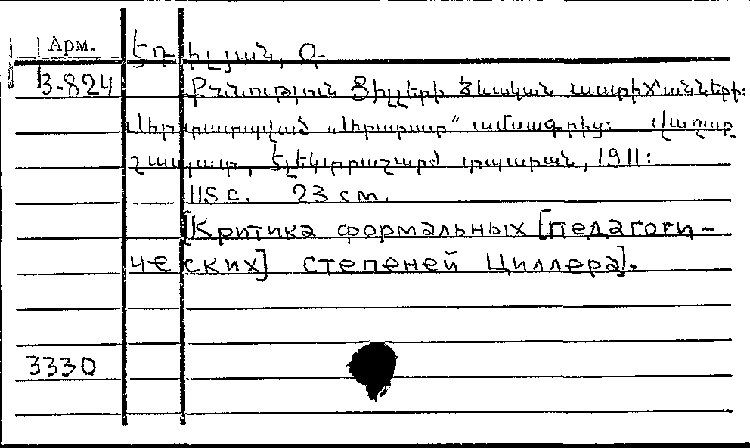 Арм.
Էդիլյան, Գ.
3-824
Քննություն Ցիլլերի ձևական աստիճանների:
Արտատպված „Արարատ" ամսագրից: Վաղար-
շապատ, Էլեկտրաշարժ տպարան, 1911:
115 с. 23 см.
[Критика формальных [педагоги-
ческих] степеней Циллера].
3330